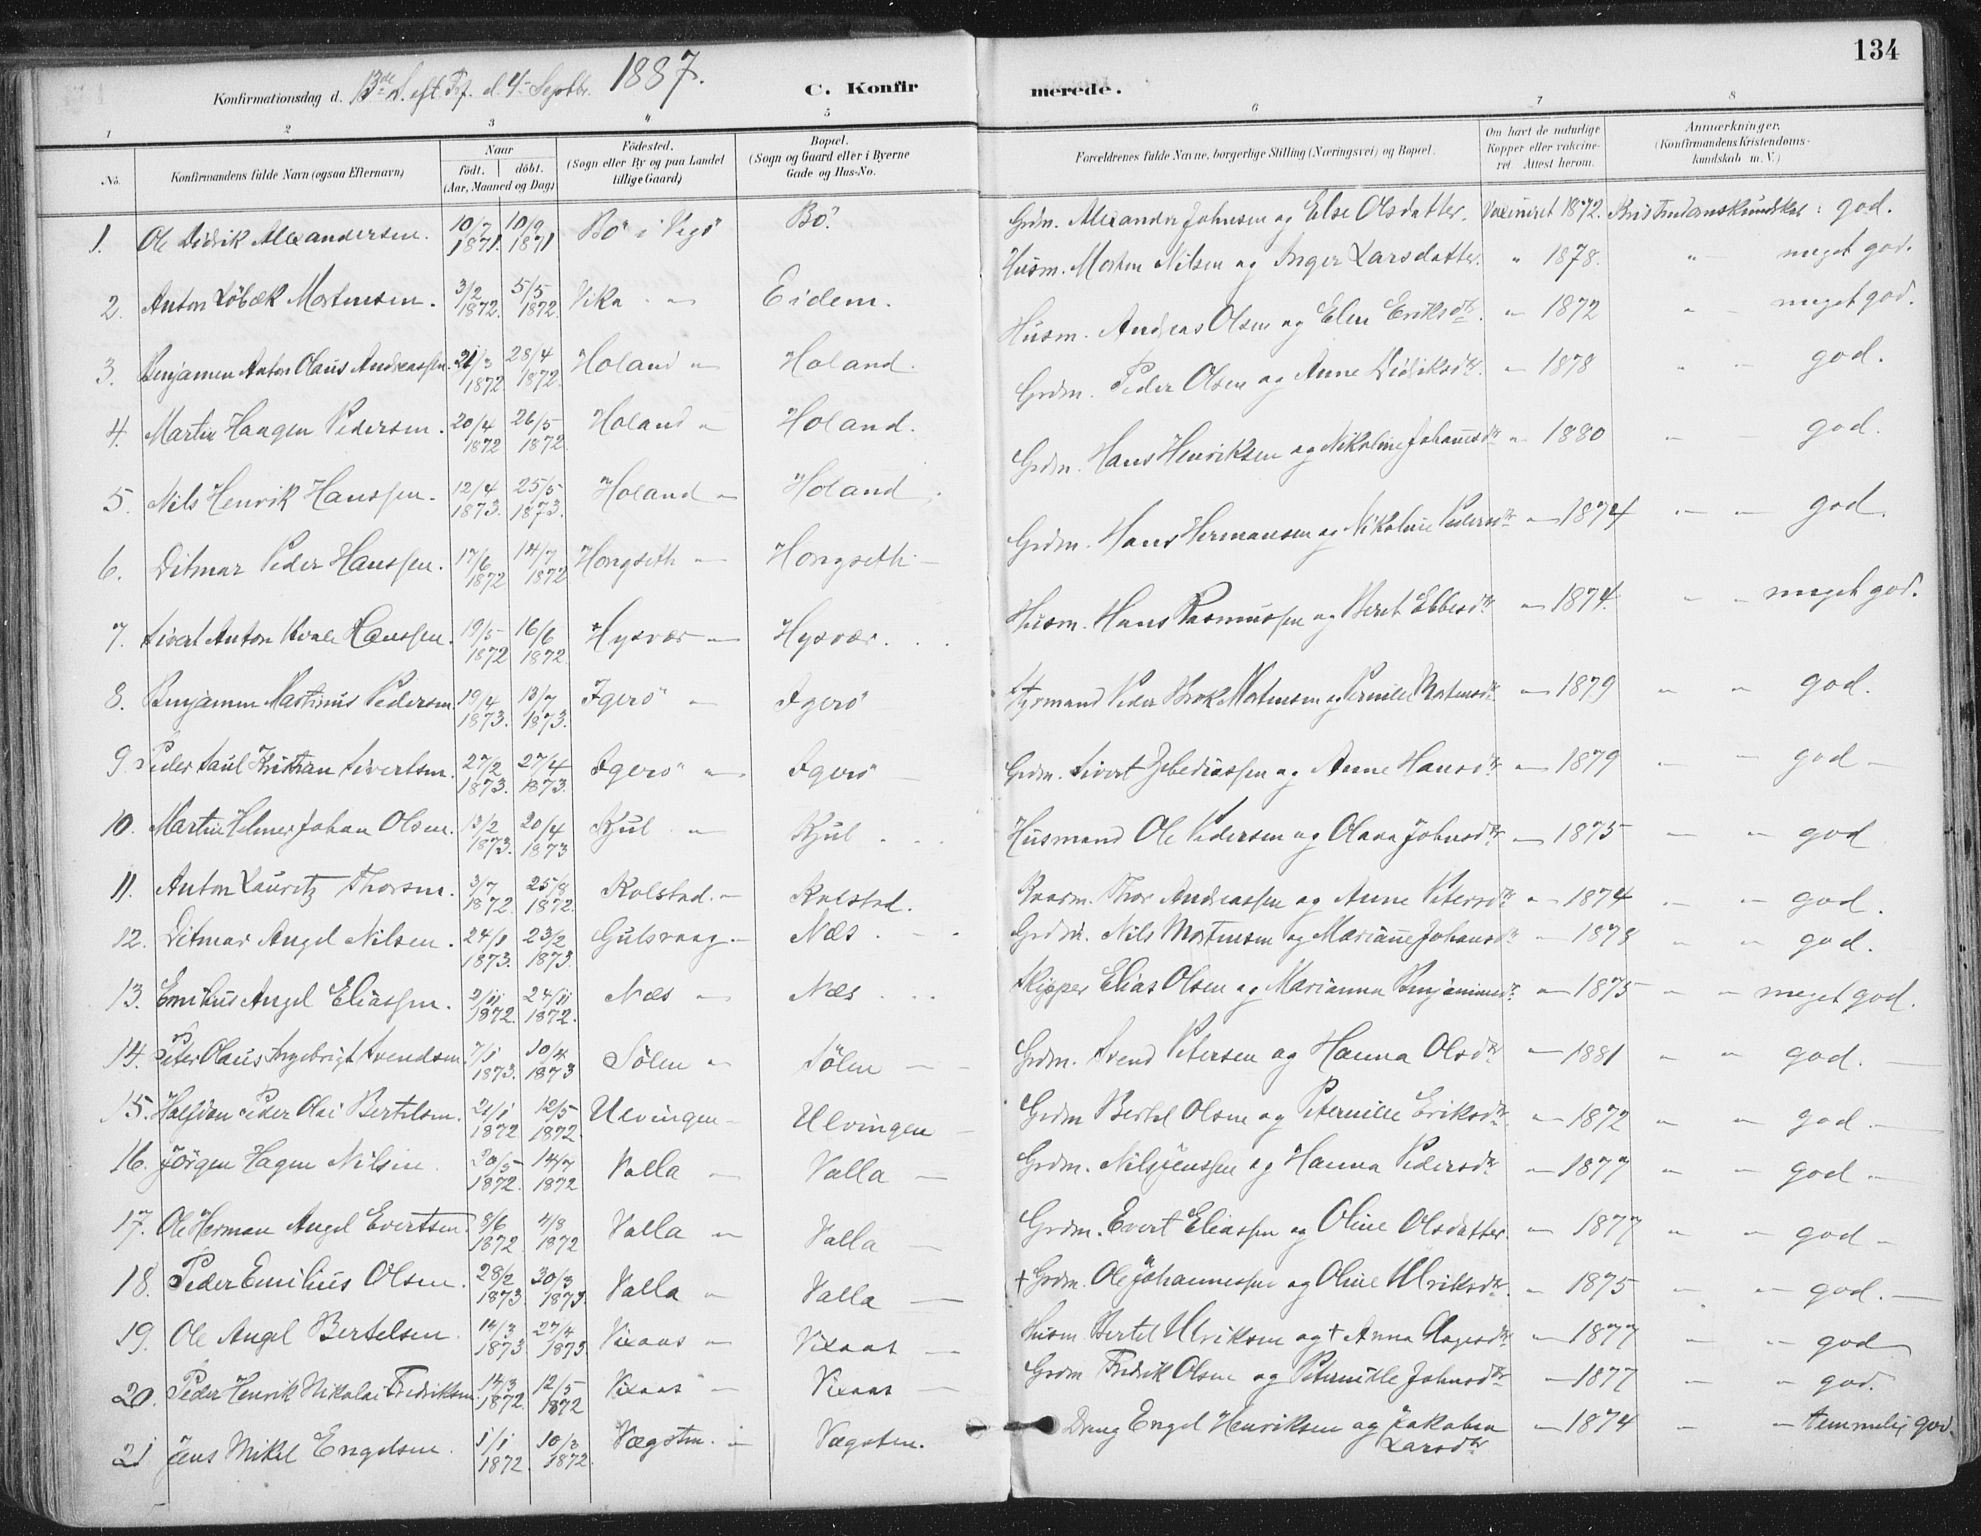 134
Konfirmationsdag d. 13de S. eft. Tref. d. 4 Septbr. 1887.
C. Konfirmerede.
1 2 3 4 5 6 7 8
No.
Konfirmandens fulde Navn (ogsaa Efternavn)
Naar
födt. döbt.
(Aar, Maaned og Dag)
Födested.
(Sogn eller By og paa Landet
tillige Gaard)
Bopæl.
(Sogn og Gaard eller i Byerne
Gade og Hus-No.
Forældrenes fulde Navne, borgerlige Stilling (Næringsvei) og Bopæl.
Om havt de naturlige
Kopper eller vakcine-
ret Attest herom.
Anmærkninger.
(Konfirmandens Kristendoms-
kundskab m. V.)
1. Ole Didrik Alexandersen. 10/7 1871. 10/9 1871 Bö i Vegö Bö. Grdm. Alexander Johnsen og Else Olsdatter. Vaxineret 1872. Kristendomskundskab: god.
2. Anton Löbæk Mortensen. 3/2 1872. 5/5 1872. Vika " Eidem. Husm. Morten Nilsen og Inger Larsdatter. " 1878. " meget god.
3. Benjamen Anton Olaus Andreassen. 21/3 1872 28/4 1872. Holand " Holand. Husm. Andreas Olsen og Elen Eriksdtr. " 1872 " meget god.
4. Martin Haagen Pedersen. 20/4 1872 26/5 1872. Holand " Holand. Grdm. Peder Olsen og Anne Didriksdtr. " 1878 " god.
5. Nils Henrik Hanssen. 12/4 1873. 25/5 1873. Holand " Holand. Grdm. Hans Henriksen og Nikoline Johansdtr " 1880 " god.
6. Ditmar Peder Hanssen. 17/6 1872 14/7 1872 Hongseth " Hongseth - Grdm. Hans Hermansen og Nikoline Pedersdtr " 1874 " " god.
7. Sivert Anton Kvale Hanssen. 19/5 1872 16/6 1872. Hysvær " Hysvær. Husm. Hans Rasmussen og Beret Ebbesdtr " 1874. " " meget god.
8. Benjamen Martinus Pedersen 19/4 1873. 13/7 1873. Igerö " Igerö Styrmand Peder Brok Mortensen og Pernille Mortensdtr " 1879 " " god.
9. Peder Paul Kristian Sivertsen. 27/2 1873. 27/4 1873. Igerö " Igerö Grdm. Sivert Zebediassen og Anne Hansdtr " 1879 " " god
10. Martin Helmer Johan Olsen. 13/2 1873. 20/4 1873 Kjul " Kjul. Husmand Ole Pedersen og Olava Johnsdtr " 1875 " " god
11. Anton Lauritz Thorsen. 3/7 1872. 25/8 1872. Kolstad. " Kolstad. Thor Andreassen og Anne Petersdtr " 1874 " " god.
12. Ditmar Angel Nilsen. 24/1 1873. 23/2 1873. Gulsvaag " Næs. Grdm. Nils Mortensen og Mariane Johansdtr " 1878 " " god.
13. Emilius Angel Eliassen. 2/11 1872. 24/11 1872. Næs " Næs. Skipper Elias Olsen og Marianna Benjaminsdtr " 1875 " " meget god.
14. Peter Olaus Ingebrigt Svendsen 7/1 1873. 10/4 1873 Sölen " Sölen Grdm. Svend Petersen og Hanna Olsdtr " 1881 " " god.
15. Halfdan Peder Olai Bertelsen. 21/1 1872 12/5 1872. Ulvingen " Ulvingen Grdm Bertel Olsen og Peternille Eriksdtr. " 1872 " " god.
16. Jörgen Hagen Nilsen. 20/5 1872. 14/7 1872 Valla " Valla Grdm. Nils Jenssen og Hanna Pedersdtr " 1877 " " god
17. Ole Herman Angel Evertsen. 8/6 1872. 4/8 1872 Valla " Valla Grdm. Evert Eliassen og Oline Olsdatter. " 1877 " " god
18. Peder Emilius Olsen. 28/2 1873. 30/3 1873. Valla " Valla † Grdm. Ole Johannessen og Oline Ulriksdtr. " 1875 " " god.
19. Ole Angel Bertelsen. 14/3 1873. 27/4 1873. Vixaas " Vixaas Husm Bertel Ulriksen og † Anna Aagesdtr " 1877 " " god
20. Peder Henrik Nikolai Fredriksen 14/3 1872. 12/5 1872 Vixaas " Vixaas Grdm Fredrik Olsen og Peternille Johnsdtr " 1877 " " god.
21 Jens Mikel Engelsen. 1/1 1872. 10/3 1872. Vægsten. " Vægsten. Dreng Engel Henriksen og Jakobea Larsdtr " 1874 " " temmelig god.